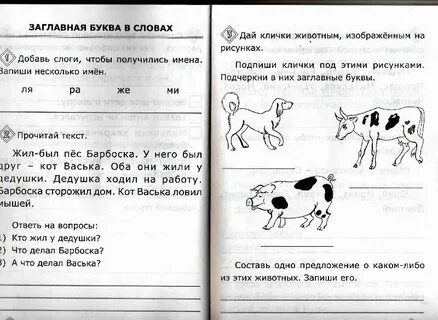 ЗАГЛАВНАЯ БУКВА В СЛОВАХ
Добавь слоги, чтобы получились имена.
Запиши несколько имён.
ля ра же ми
Прочитай текст.
Жил-был пёс Барбоска. У него был
друг – кот Васька. Оба они жили у
дедушки. Дедушка ходил на работу.
Барбоска сторожил дом. Кот Васька ловил
мышей.
Ответь на вопросы:
1) Кто жил у дедушки?
2) Что делал Барбоска?
3) А что делал Васька?
Дай клички животным, изображённым на
рисунках.
Подпиши клички под этими рисунками.
Подчеркни в них заглавные буквы.
Составь одно предложение о каком-либо
из этих животных. Запиши его.